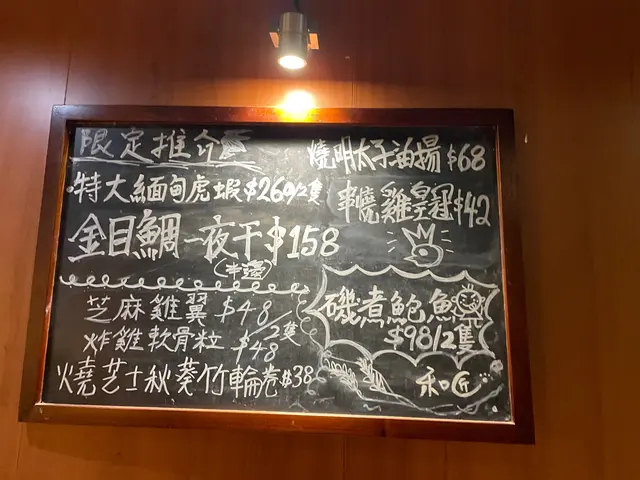 限定推介
特大緬甸虎蝦$269/2隻
金目鯛一夜干$158
(半邊)
芝麻雞翼 $48/2隻
炸雞軟骨粒 $48
燒芝士秋葵竹輪卷$38
燒明太子油揚$68
串燒雞皇冠$42
磯煮鮑魚
$98/2隻
和匠